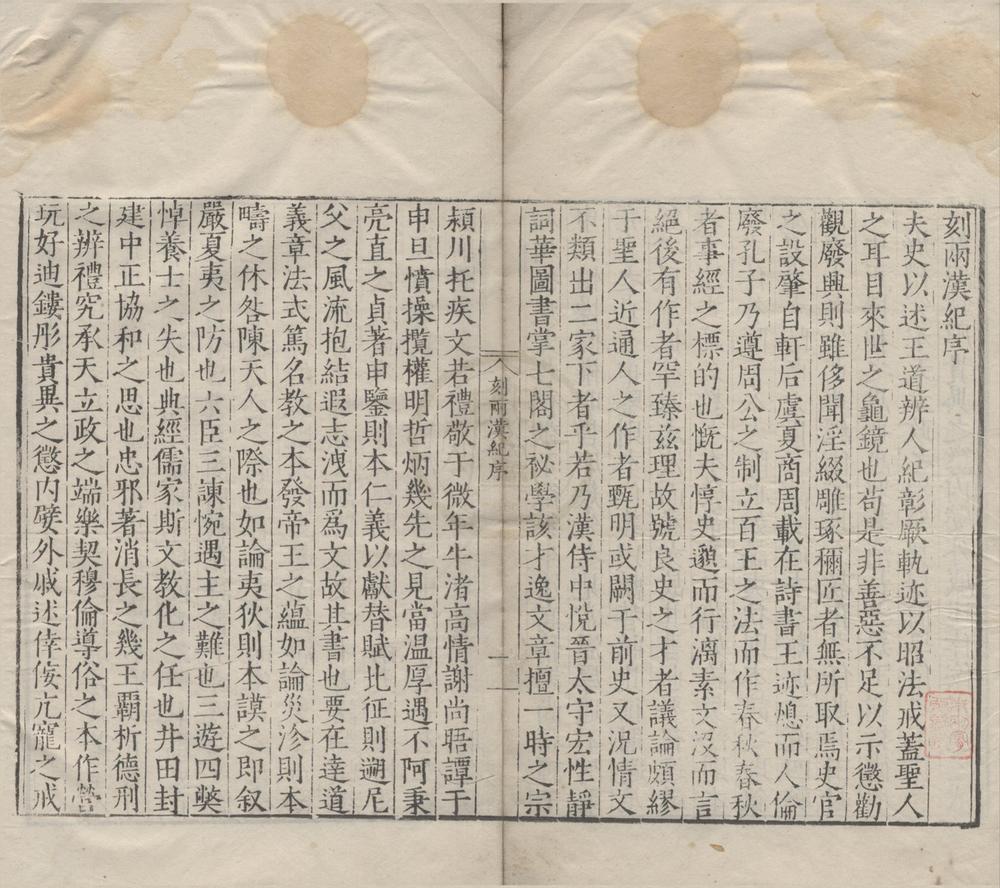 刻兩漢紀序
夫史以述王道辨人紀彰厥軌迹以昭法戒蓋聖人
之耳目來世之龜鏡也苟是非善惡不足以示懲勸
觀廢興則雖侈聞淫綴雕琢穪匠者無所取焉史官
之設肇自軒后虞夏商周載在詩書王迹熄而人倫
廢孔子乃遵周公之制立百王之法而作春秋春秋
者事經之標的也慨夫惇史邈而行漓素文沒而言
絕後有作者罕臻兹理故號良史之才者議論頗繆
于聖人近通人之作者甄明或闕于前史又況情文
不類出二家下者乎若乃漢侍中悅晉太守宏性靜
詞華圖書掌七閣之祕學該才逸文章擅一時之宗
刻兩漢紀序
一
潁川托疾文若禮敬于微年牛渚高情謝尚晤譚于
申旦憤操攬權明哲炳幾先之見當溫厚遇不阿秉
亮直之貞著申鑒則本仁義以獻替賦北征則遡尼
父之風流抱結遐志洩而爲文故其書也要在達道
義章法式篤名教之本發帝王之蘊如論災沴則本
疇之休咎陳天人之際也如論夷狄則本謨之即叙
嚴夏夷之防也六臣三諫惋遇主之難也三遊四獘
悼養士之失也典經儒家斯文教化之任也井田封
建中正協和之思也忠邪著消長之幾王覇析德刑
之辨禮究承天立政之端樂契穆倫導俗之本作營
玩好迪鏤彤貴異之懲内嬖外戚述倖侫亢寵之戒